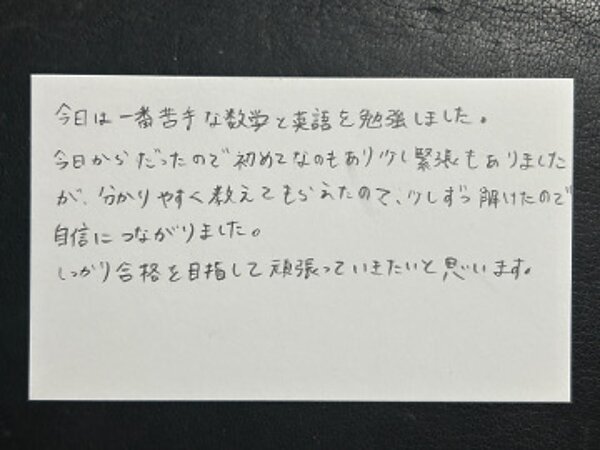 今日は一番苦手な数学と英語を勉強しました。
今日からだったので初めてなのもあり少し緊張もありました
が、分かりやすく教えてもらえたので、少しずつ解けたので
自信につながりました。
しっかり合格を目指して頑張っていきたいと思います。